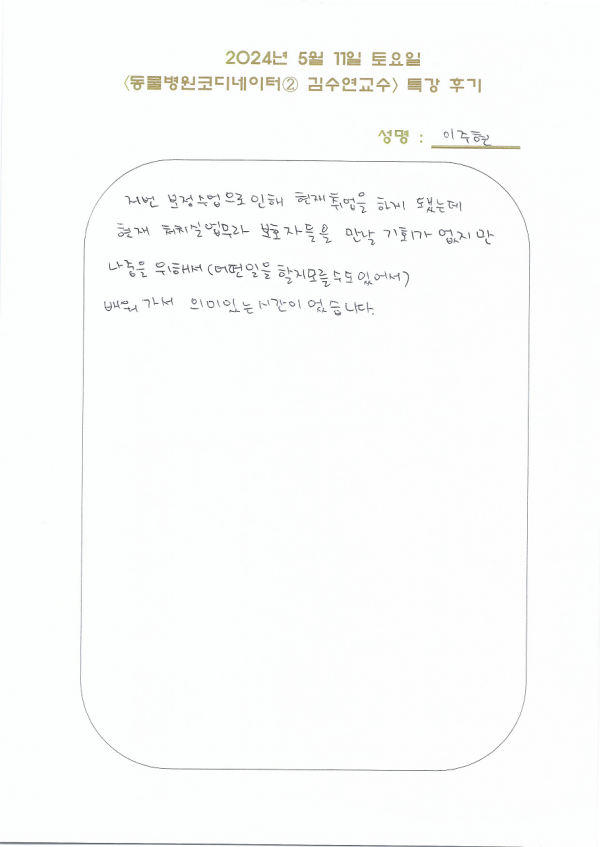 2024년 5월 11일 토요일
<동물병원코디네이터② 김수연교수> 특강 후기
성명 : 이주현
저번 보정수업으로 인해 현재 취업을 하게 됬는데
현재 처치실업무라 보호자들을 만날 기회가 없지만
나중을 위해서 (어떤일을 할지모를수도있어서)
배워가서 의미있는시간이었습니다.